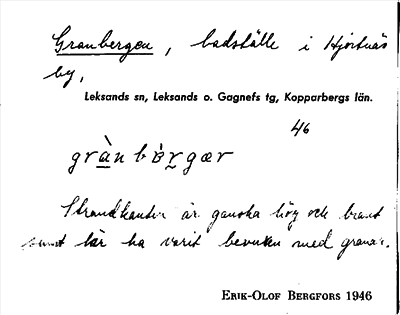 Granbergen, badställe i Hjortnäs
by,
Leksands sn, Leksands o. Gagnefs tg, Kopparbergs län.
46
grànbǿrgær
Strandkanten är ganska hög och brant
samt lär ha varit bevuxen med granar.
ERIK-OLOF BERGFORS 1946